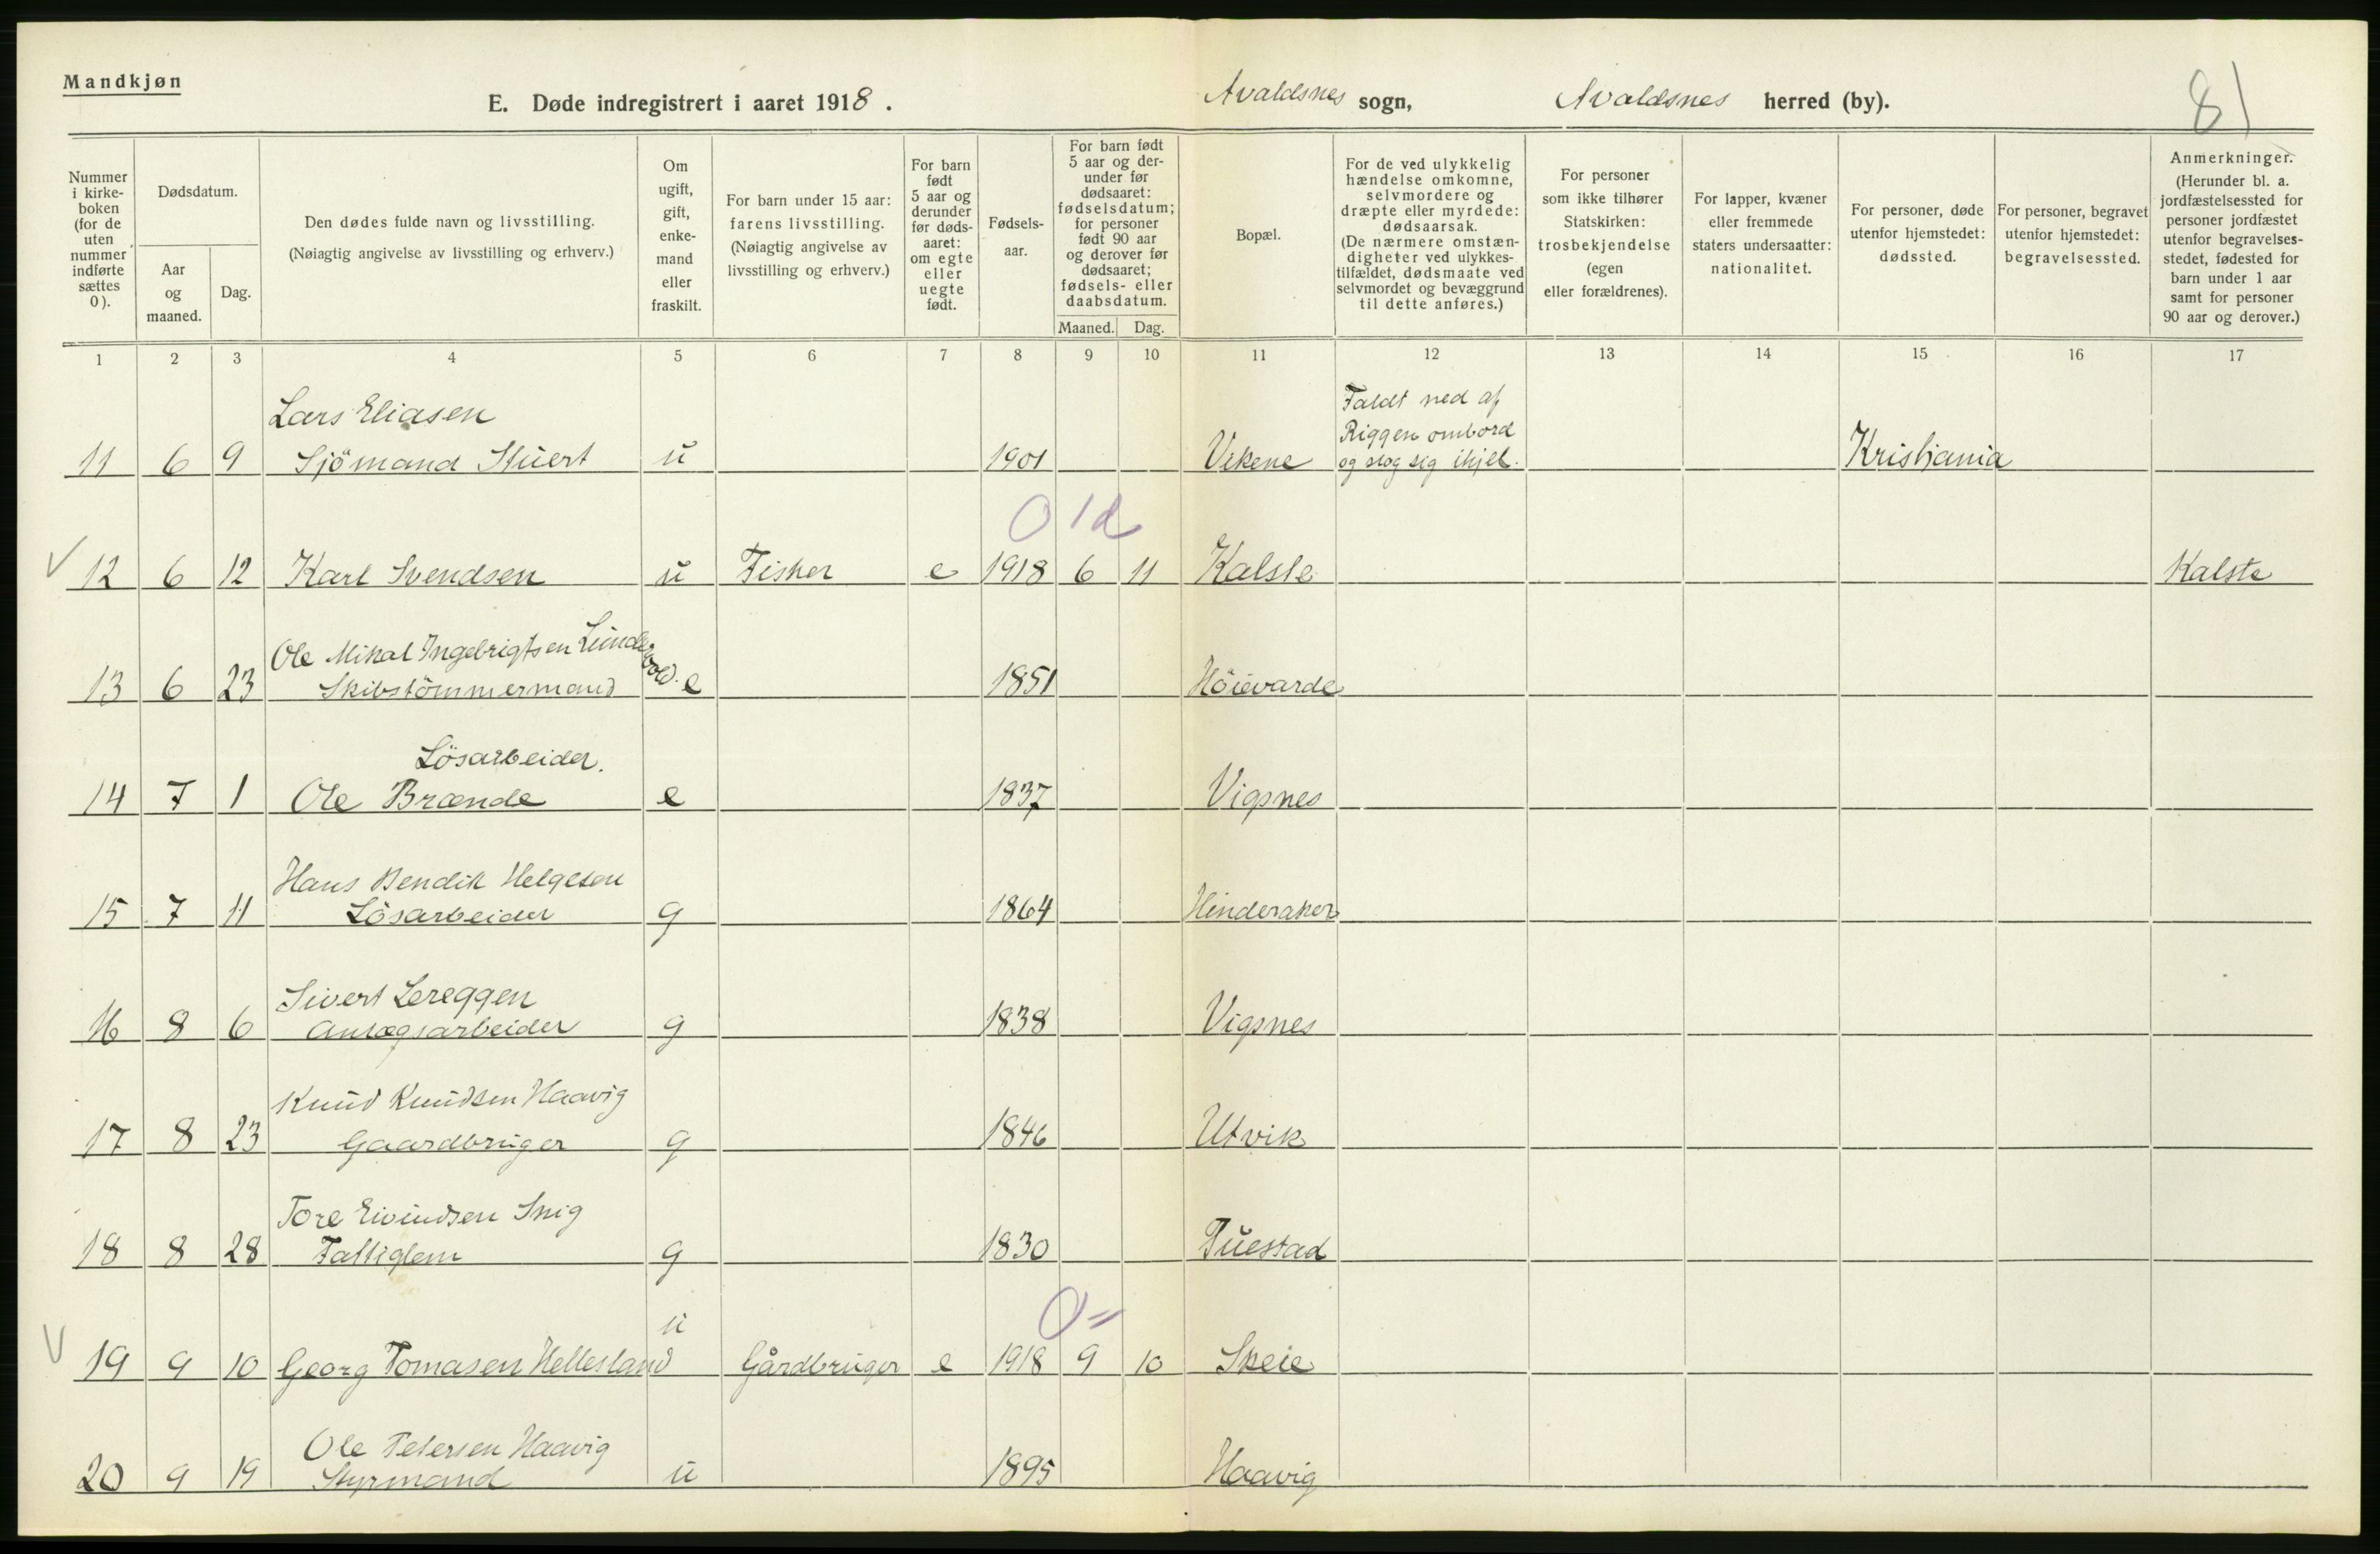 Mandkjøn
E. Døde indregistrert i aaret 1918.
Avaldsnes sogn, Avaldsnes herred (by).
81
Nummer i kirkeboken (for de uten nummer indførte sættes 0).
Dødsdatum.
Aar og maaned.
Dag.
Den dødes fulde navn og livsstilling.
(Nøiagtig angivelse av livsstilling og erhverv.)
Om ugift, gift, enkemand eller fraskilt.
For barn under 15 aar: farens livsstilling.
(Nøiagtig angivelse av livsstilling og erhverv.)
For barn født 5 aar og derunder før dødsaaret: om egte eller uegte født.
Fødselsaar.
For barn født 5 aar og derunder før dødsaaret: fødselsdatum; for personer født 90 aar og derover før dødsaaret; fødsels- eller daabsdatum.
Maaned. Dag.
Bopæl.
For de ved ulykkelig hændelse omkomne, selvmordere og dræpte eller myrdede: dødsaarsak.
(De nærmere omstændigheter ved ulykkestilfældet, dødsmaate ved selvmordet og bevæggrund til dette anføres.)
For personer som ikke tilhører Statskirken: trosbekjendelse (egen eller forældrenes).
For lapper, kvæner eller fremmede staters undersaatter: nationalitet.
For personer, døde utenfor hjemstedet: dødssted.
For personer, begravet utenfor hjemstedet: begravelsessted.
Anmerkninger.
(Herunder bl. a. jordfæstelsessted for personer jordfæstet utenfor begravelsesstedet, fødested for barn under 1 aar samt for personer 90 aar og derover.)
1 2 3 4 5 6 7 8 9 10 11 12 13 14 15 16 17
Lars Eliasen
Faldt ned af
Riggen ombord
11 6 9 Sjömand Stuert u 1901 Vikene og slog sig ihjel. Kristjania
0 1d
V 12 6 12 Karl Svendsen u Fisker e 1918 6 11 Kalste Kalste
Ole Mikal Ingebrigtsen Lundevold.
13 6 23 Skibstömmermand e 1851 Höievarde
Lösarbeider.
14 7 1 Ole Brænde e 1837 Vigsnes
Hans Bendik Helgesen
15 7 11 Lösarbeider g 1864 Hinderaker
Sivert Lereggen
16 8 6 Anlægsarbeider g 1838 Vigsnes
Knud Knudsen Haavig
17 8 23 Gaardbruger g 1846 Utvik
Tore Eivindsen Snig
18 8 28 Fattiglem g 1830 Tuestad
u
0 =
V 19 9 10 Georg Tomasen Hellesland Gårdbruger e 1918 9 10 Skeie
Ole Petersen Haavig
20 9 19 Styrmand u 1895 Haavig